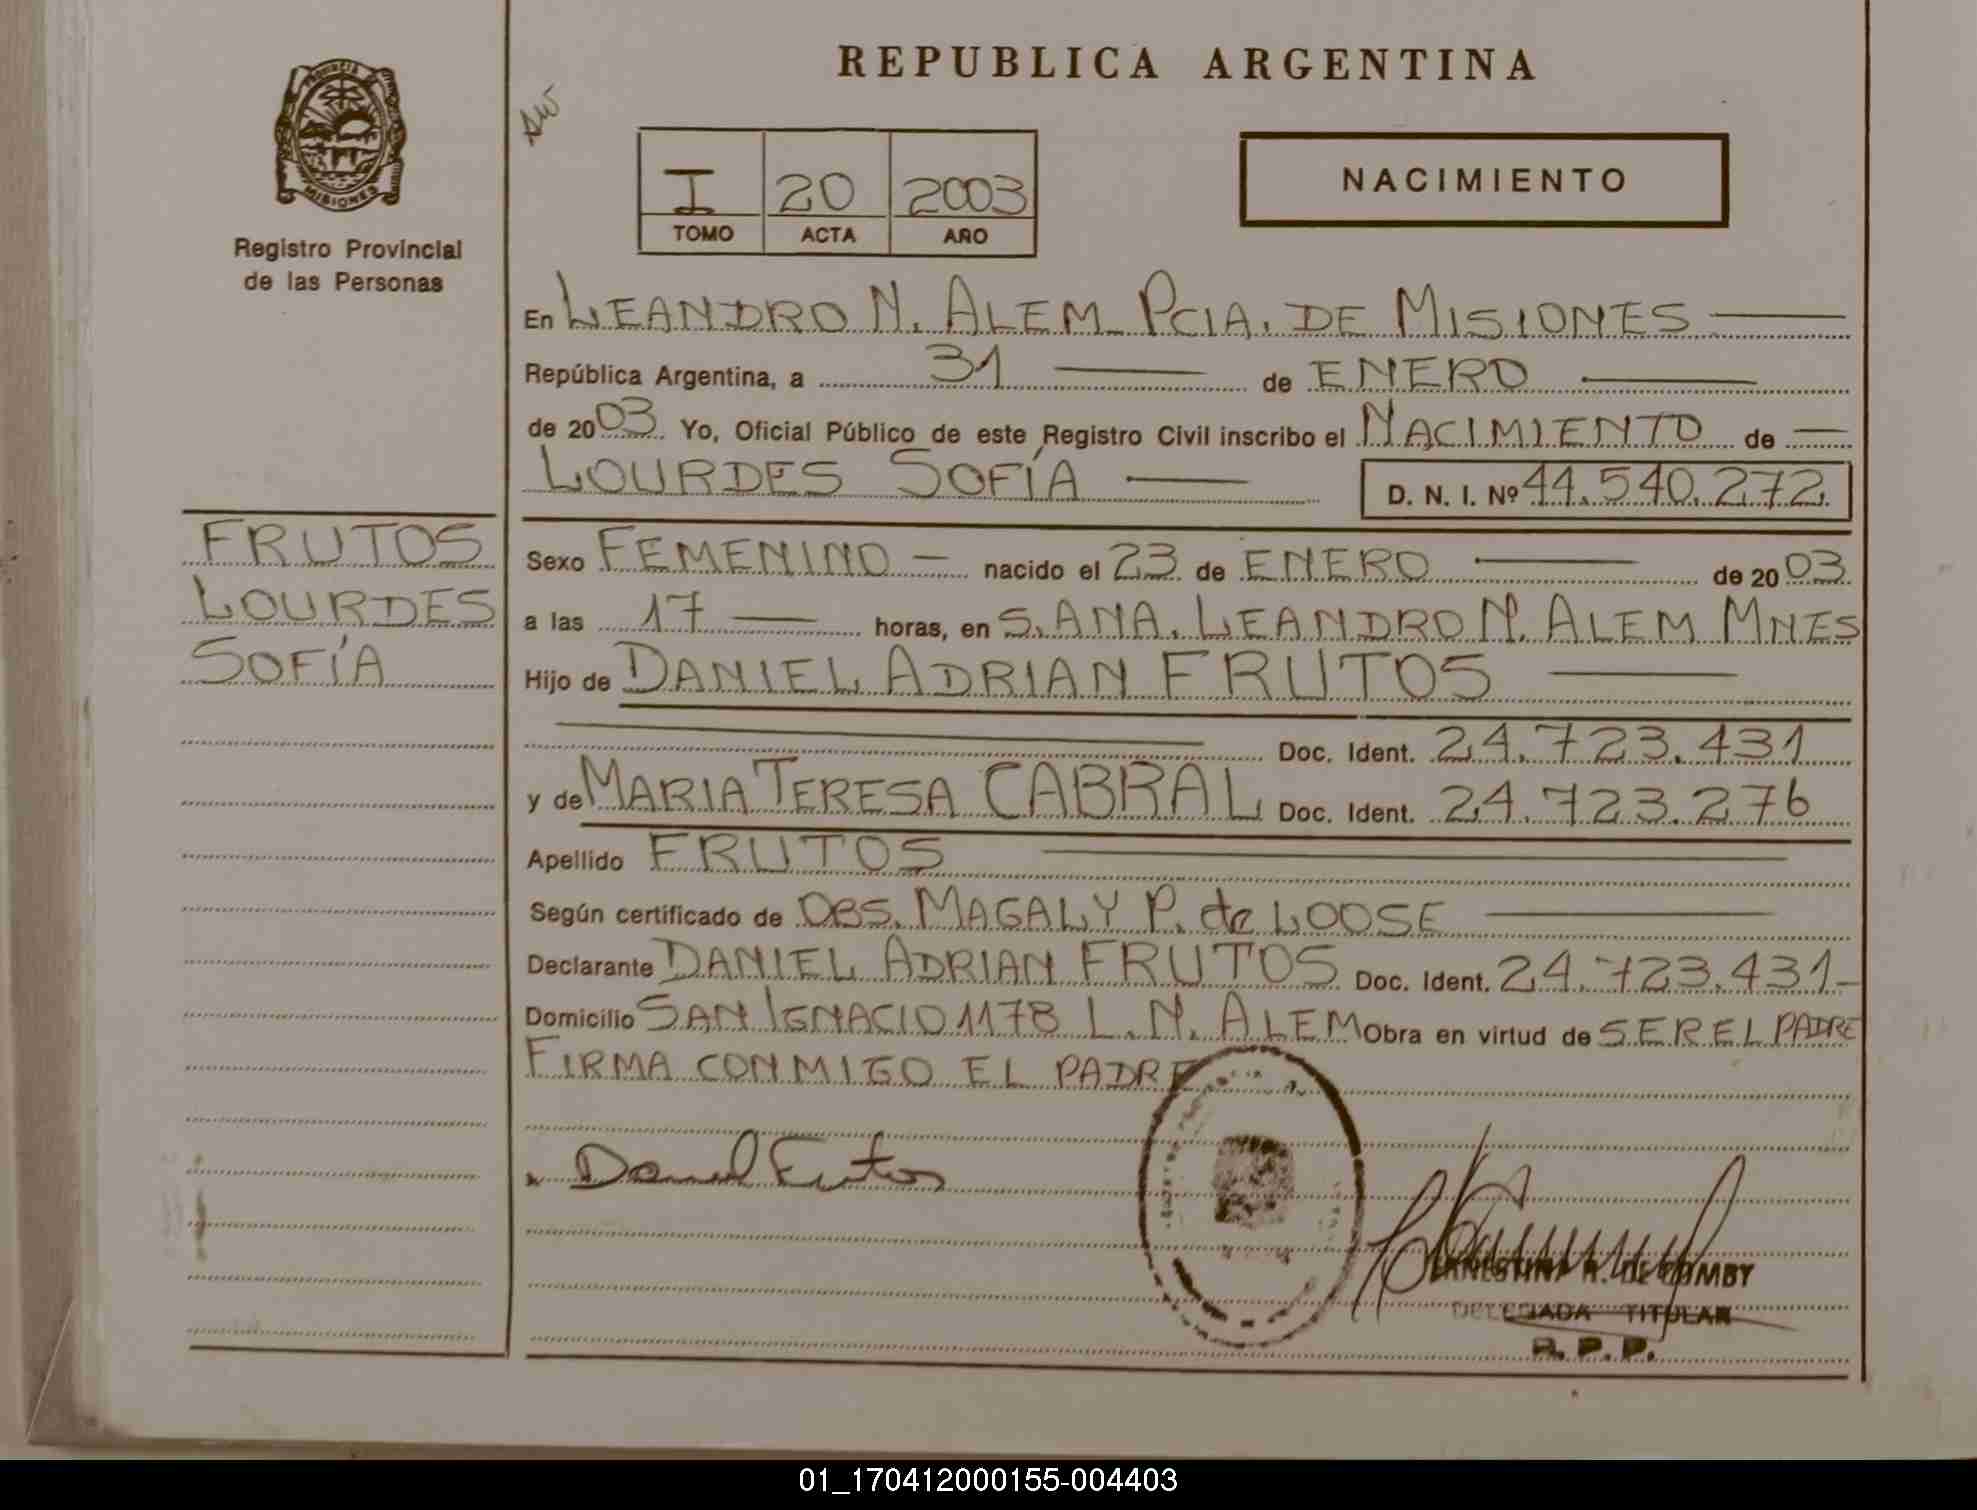 REPUBLICA ARGENTINA
PROVINCIA
MISIONES
Registro Provincial
de las Personas
I 20 2003
TOMO ACTA AÑO
NACIMIENTO
En LEANDRO N. ALEM PCIA. DE MISIONES
República Argentina, a 31 de ENERO
de 2003 Yo, Oficial Público de este Registro Civil inscribo el NACIMIENTO de
LOURDES SOFÍA D. N. I. Nº 44.540.272
FRUTOS
LOURDES
SOFÍA
Sexo FEMENINO nacido el 23 de ENERO de 2003
a las 17 horas, en S. ANA. LEANDRO N. ALEM MNES
Hijo de DANIEL ADRIAN FRUTOS
Doc. Ident. 24.723.431
y de MARIA TERESA CABRAL Doc. Ident. 24.723.276
Apellido FRUTOS
Según certificado de OBS. MAGALY P. de LOOSE
Declarante DANIEL ADRIAN FRUTOS Doc. Ident. 24.723.431
Domicilio SAN IGNACIO 1178 L. N. ALEM Obra en virtud de SER EL PADRE
FIRMA CONMIGO EL PADRE
Daniel Frutos
ERNESTINA R. DE
DELEGADA TITULAR
R. P. P.
01_170412000155-004403